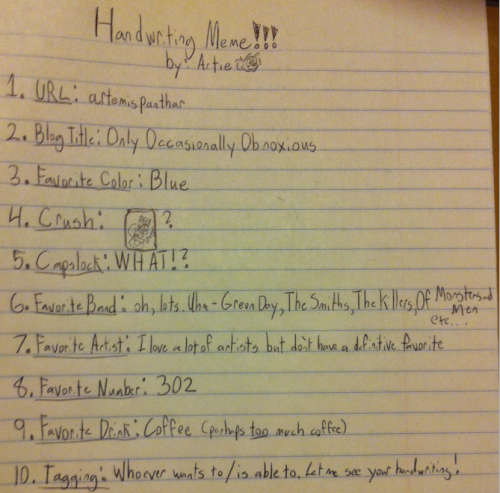 Handwriting Meme!!!
by: Artie
1. URL: artemispanthar
2. Blog Title: Only Occasionally Obnoxious
3. Favorite Color: Blue
4. Crush: ?
5. Capslock: WHAT!?
6. Favorite Band: oh, lots. Uhm - Green Day, The Smiths, The Killers, Of Monsters and Men
etc...
7. Favorite Artist: I love a lot of artists but don't have a definitive favorite
8. Favorite Number: 302
9. Favorite Drink: Coffee (perhaps too much coffee)
10. Tagging: Whoever wants to/is able to. Let me see your handwriting!